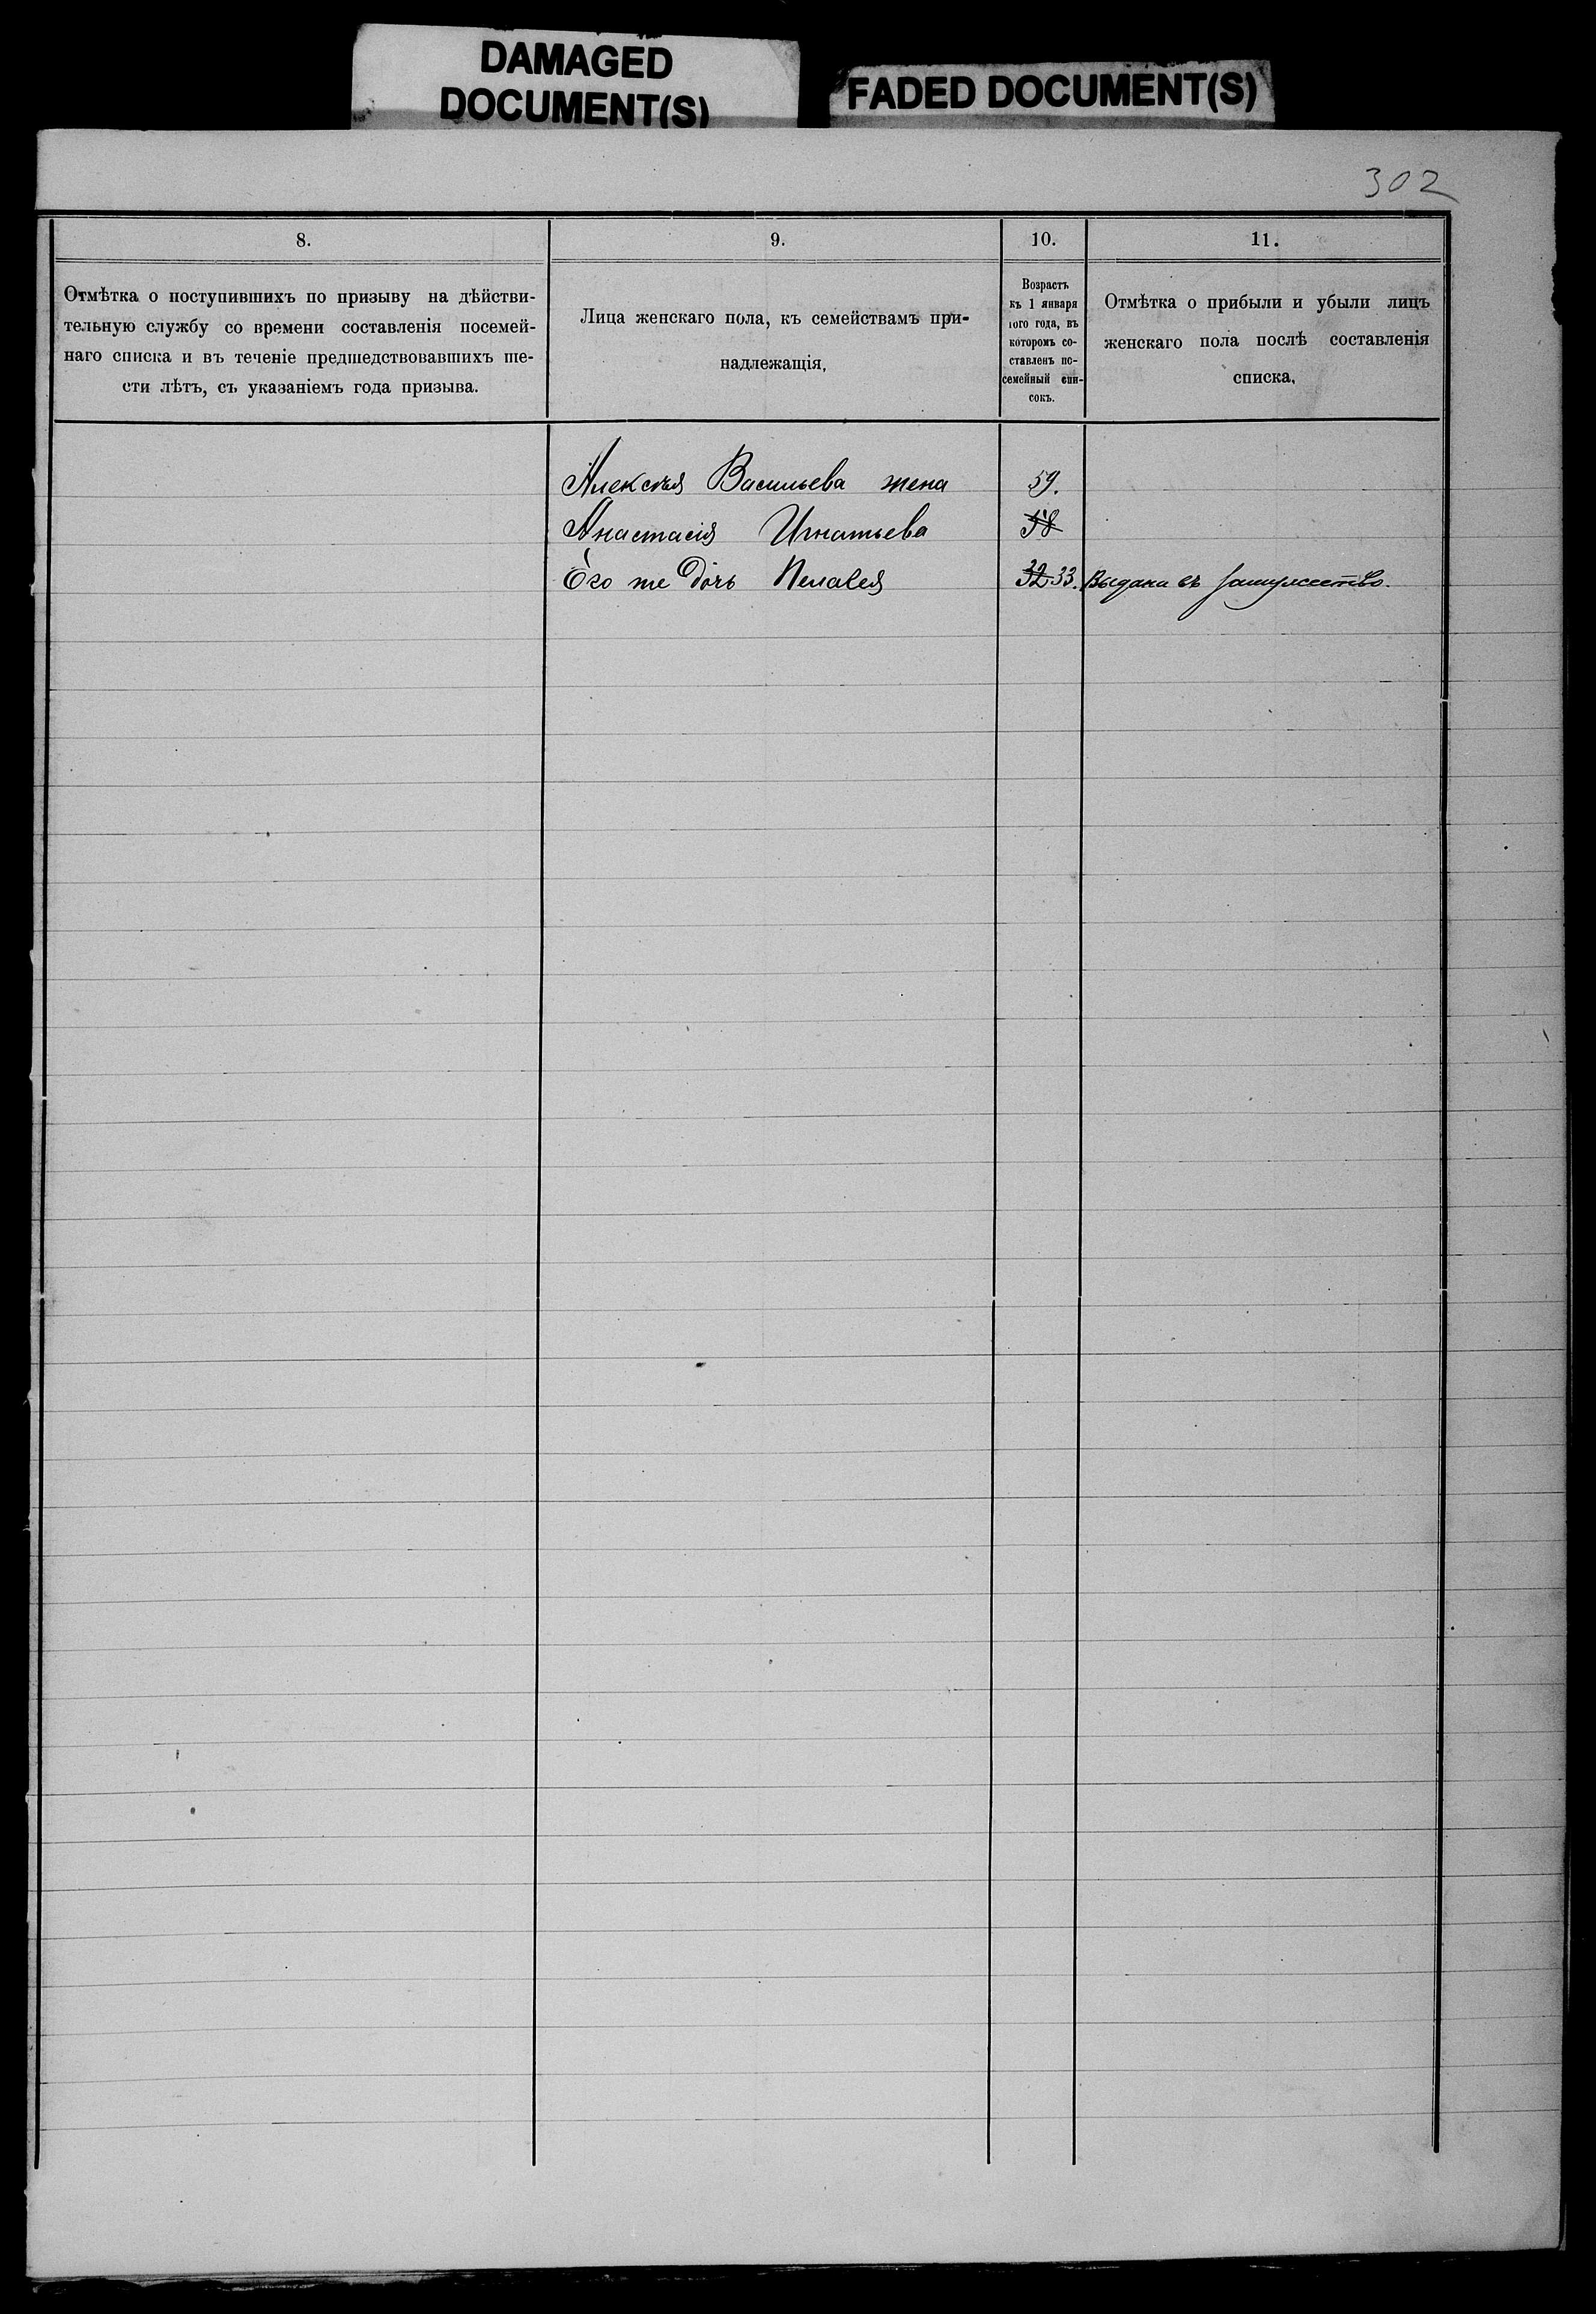 DAMAGED
DOCUMENT(S)
FADED DOCUMENT(S)
302
8.
9.
10.
11.
Отмѣтка о поступившихъ по призыву на дѣйстви-
тельную службу со времени составленія посемей-
наго списка и въ теченіе предшедствовавшихъ ше-
сти лѣтъ, съ указаніемъ года призыва.
Лица женскаго пола, къ семействамъ при-
надлежащія,
Возрастъ
къ 1 января
того года, въ
которомъ со-
ставленъ по-
семейный спи-
сокъ.
Отмѣтка о прибыли и убыли лицъ
женскаго пола послѣ составленія
списка,
Алексѣя Васильева жена 59.
Анастасія Игнатьева 58
Его же дочь Пелагея 32 33. Выдана въ замужество.